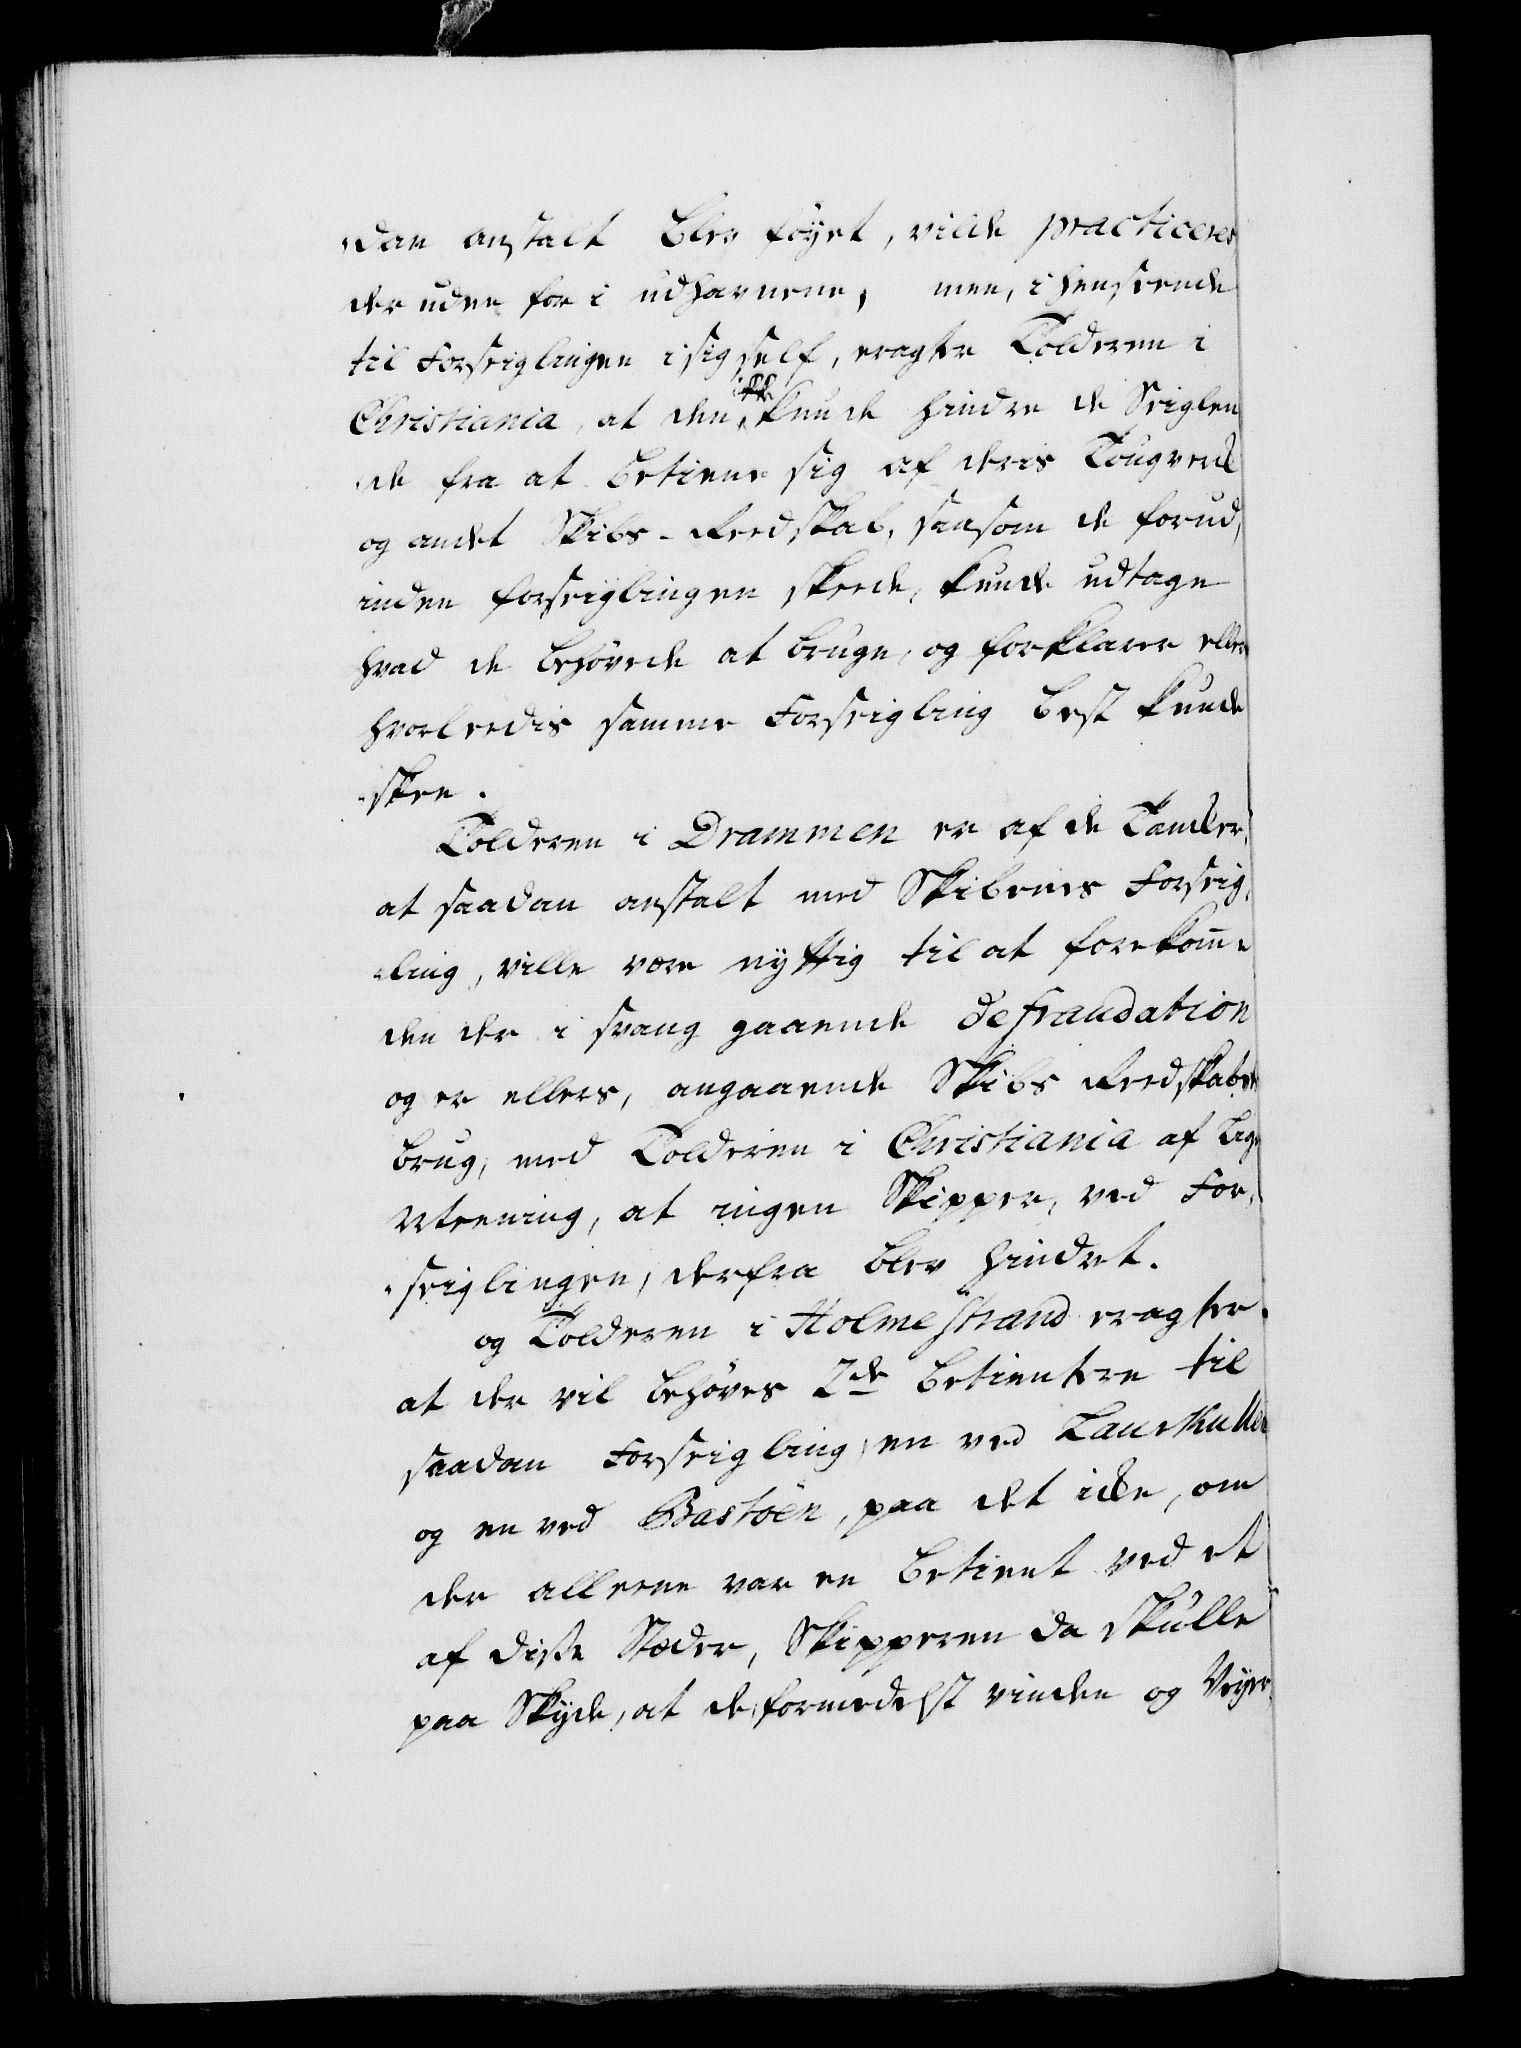 dan anstalt blev føyet, vilde practiceres
der uden for i udhavnene, men, i henseende
til Forseiglingen i sig self, eragter Tolderen i
Christiania, at den ikke kunde hindre de Seiglen
de fra at betiene sig af deris Tougverk
og andet Skibs-Redskab, saasom de forud,
inden forseiglingen skeede, kunde udtage
hvad de behøvede at bruge, og forklarer ellers
hvorledis samme Forseigling best kunde
skee.
Tolderen i Drammen er af de Tanker,
at saadan anstalt med Skibenes Forseig,
ling, ville være nyttig til at forekom̅e
den der i svang gaaende defraudation
og er ellers, angaaende Skibs Redskabs
brug, med Tolderen i Christiania af lige
Meening, at ingen Skipper, ved For,
seiglingen, derfra blev hindret.
og Tolderen i Holmestrand eragter.
at der vil behøves 2de betientere til
saadan Forseigling, en ved Laurkullen
og en ved Bastöen, paa det icke, om
der alleene var en betient ved et
af disse Stæder, Skipperen da skulle
paa Skyde, at de formedelst vinden og Veyr,